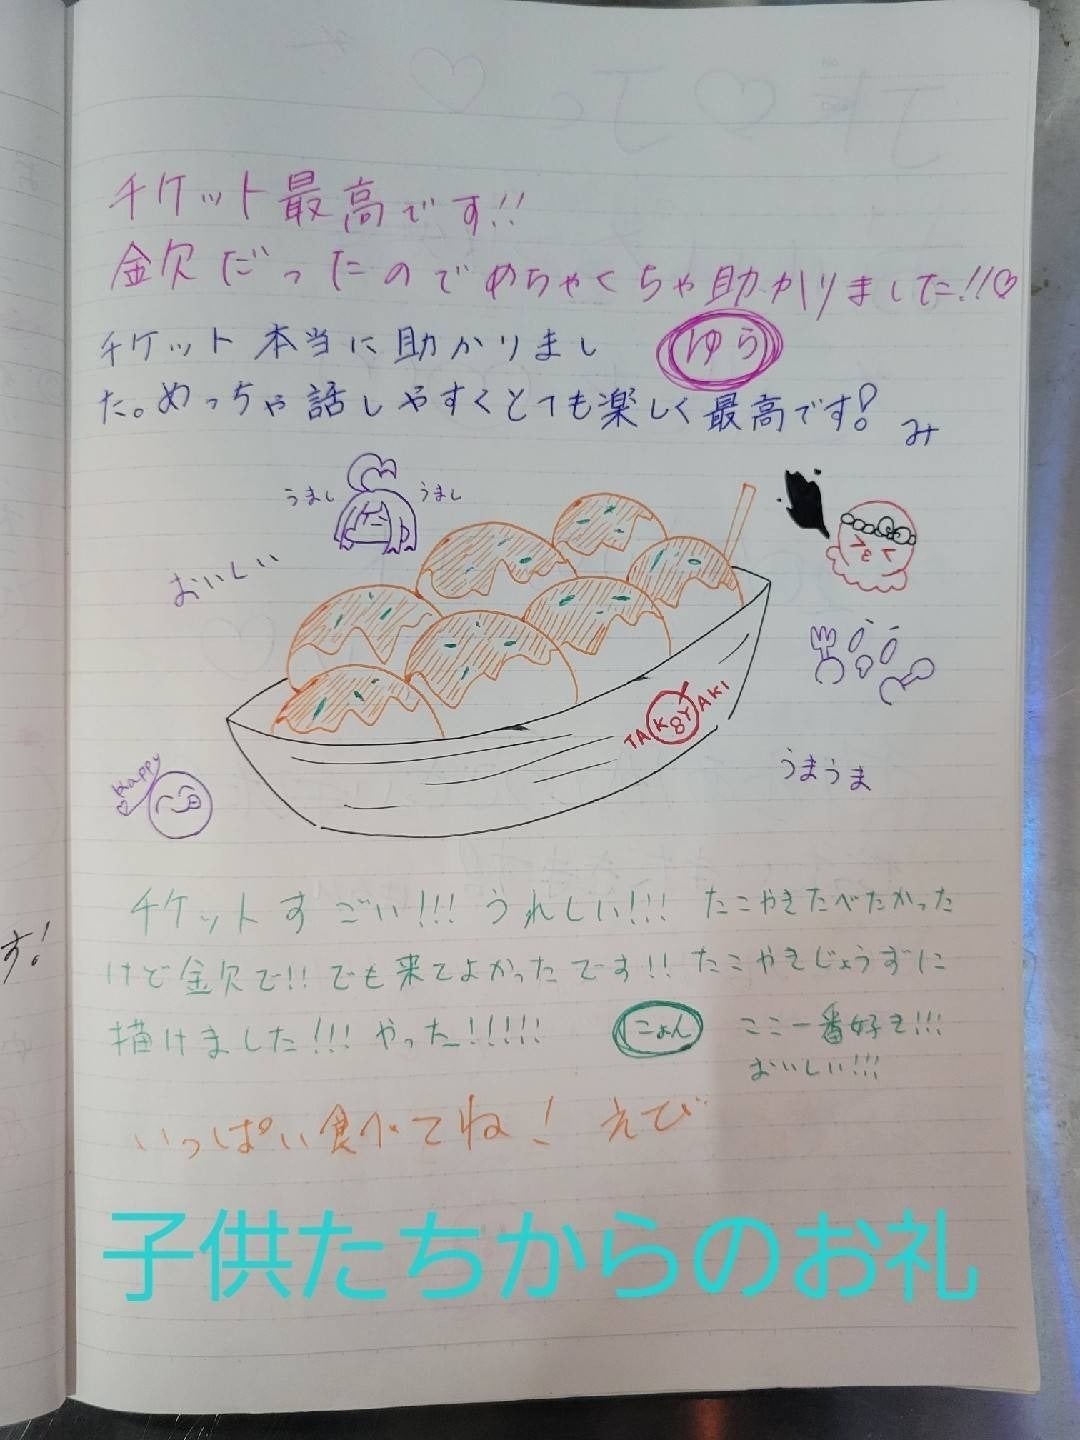 チケット最高です!!
金欠だったのでめちゃくちゃ助かりました!!♡
ゆう
チケット本当に助かりまし
た。めっちゃ話しやすくとても楽しく最高です!
み
うまし
うまし
おいしい
TAKOYAKI
うまうま
Happy
す!
チケットすごい!!! うれしい!!! たこやきたべたかった
けど金欠で!! でも来てよかったです!! たこやきじょうずに
描けました!!! やった!!!!!
こょん
ここ一番好き!!!
おいしい!!!
いっぱい食べてね! えび
子供たちからのお礼